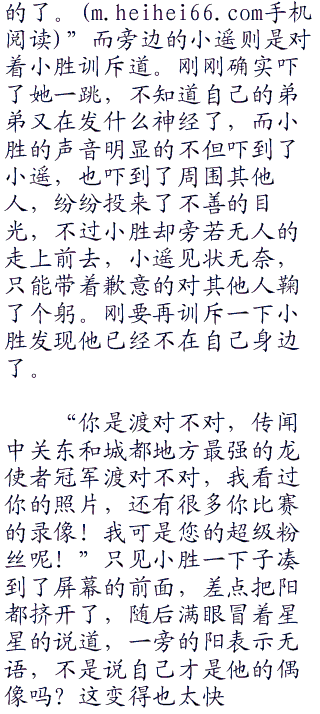 的了。(m.heihei66.com手机
阅读)”而旁边的小遥则是对
着小胜训斥道。刚刚确实吓
了她一跳，不知道自己的弟
弟又在发什么神经了，而小
胜的声音明显的不但吓到了
小遥，也吓到了周围其他
人，纷纷投来了不善的目
光，不过小胜却旁若无人的
走上前去，小遥见状无奈，
只能带着歉意的对其他人鞠
了个躬。刚要再训斥一下小
胜发现他已经不在自己身边
了。
“你是渡对不对，传闻
中关东和城都地方最强的龙
使者冠军渡对不对，我看过
你的照片，还有很多你比赛
的录像！我可是您的超级粉
丝呢！”只见小胜一下子凑
到了屏幕的前面，差点把阳
都挤开了，随后满眼冒着星
星的说道，一旁的阳表示无
语，不是说自己才是他的偶
像吗？这变得也太快